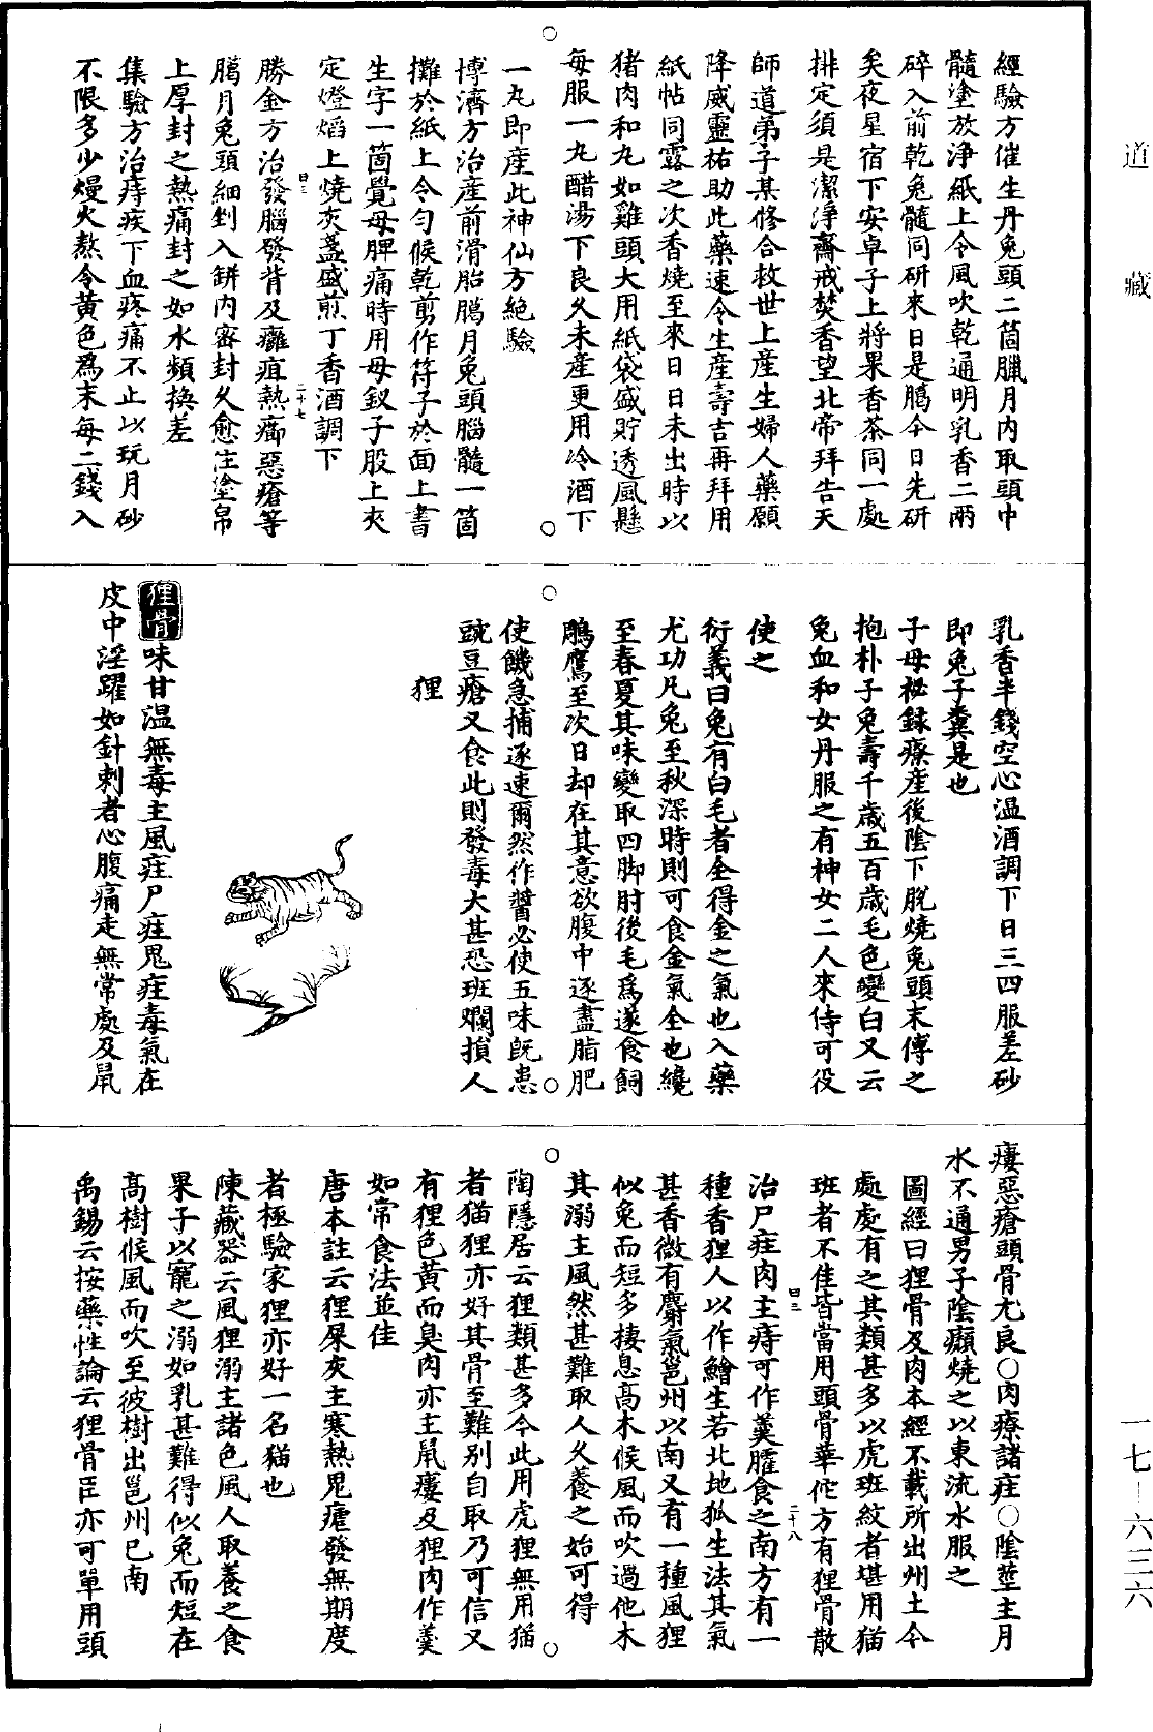 道藏
經驗方催生丹兔頭二箇臘月内取頭中
髓塗放淨紙上令風吹乾通明乳香二兩
碎入前乾兔髓同研來日是臈今日先研
矣夜星宿下安卓子上將果香茶同一處
排定須是潔淨齋戒焚香望北帝拜告天
師道弟子某修合救世上産生婦人藥願
降威靈祐助此藥速令生産壽吉再拜用
紙帖同露之次香燒至來日日未出時以
猪肉和丸如雞頭大用紙袋盛貯透風懸
每服一丸醋湯下良久未産更用冷酒下
一丸即産此神仙方絶驗
博濟方治産前滑胎臈月兔頭腦髓一箇
攤於紙上令匀候乾剪作符子於面上書
生字一箇覺母脾痛時用母釵子股上夾
定燈焰上燒灰盞盛煎丁香酒調下
曰三 二十七
勝金方治發腦發背及癰疽熱癤惡瘡等
臈月兔頭細剉入缾内密封久愈佳塗帛
上厚封之熱痛封之如水頻換差
集驗方治痔疾下血疼痛不止以玩月砂
不限多少熳火熬令黄色爲末每二錢入
乳香半錢空心温酒調下日三四服差砂
即兔子糞是也
子母祕録療産後陰下脱燒兔頭末傅之
抱朴子兔壽千歳五百歳毛色變白又云
兔血和女丹服之有神女二人來侍可役
使之
衍義曰兔有白毛者全得金之氣也入藥
尤功凡兔至秋深時則可食金氣全也纔
至春夏其味變取四脚肘後毛爲逐食飼
鵰鷹至次日却在其意欲腹中逐盡脂肥
使饑急捕逐速爾然作醬必使五味既患
豌豆瘡又食此則發毒大甚恐斑爛損人
狸
狸骨味甘温無毒主風疰尸疰鬼疰毒氣在
皮中淫躍如針刺者心腹痛走無常處及鼠
瘻惡瘡頭骨尤良○肉療諸疰○陰莖主月
水不通男子陰癩燒之以東流水服之
圖經曰狸骨及肉本經不載所出州土今
處處有之其類甚多以虎班紋者堪用猫
班者不佳皆當用頭骨華佗方有狸骨散
曰三 二十八
治尸疰肉主痔可作羹臛食之南方有一
種香狸人以作鱠生若北地狐生法其氣
甚香微有麝氣邕州以南又有一種風狸
似兔而短多棲息高木候風而吹過他木
其溺主風然甚難取人久養之始可得
陶隱居云狸類甚多今此用虎狸無用猫
者猫狸亦好其骨至難别自取乃可信又
有狸色黄而臭肉亦主鼠瘻及狸肉作羹
如常食法並佳
唐本註云狸屎灰主寒熱鬼瘧發無期度
者極驗家狸亦好一名猫也
陳藏器云風狸溺主諸色風人取養之食
果子以寵之溺如乳甚難得似兔而短在
高樹候風而吹至彼樹出邕州已南
禹錫云按藥性論云狸骨臣亦可單用頭
一七—六三六